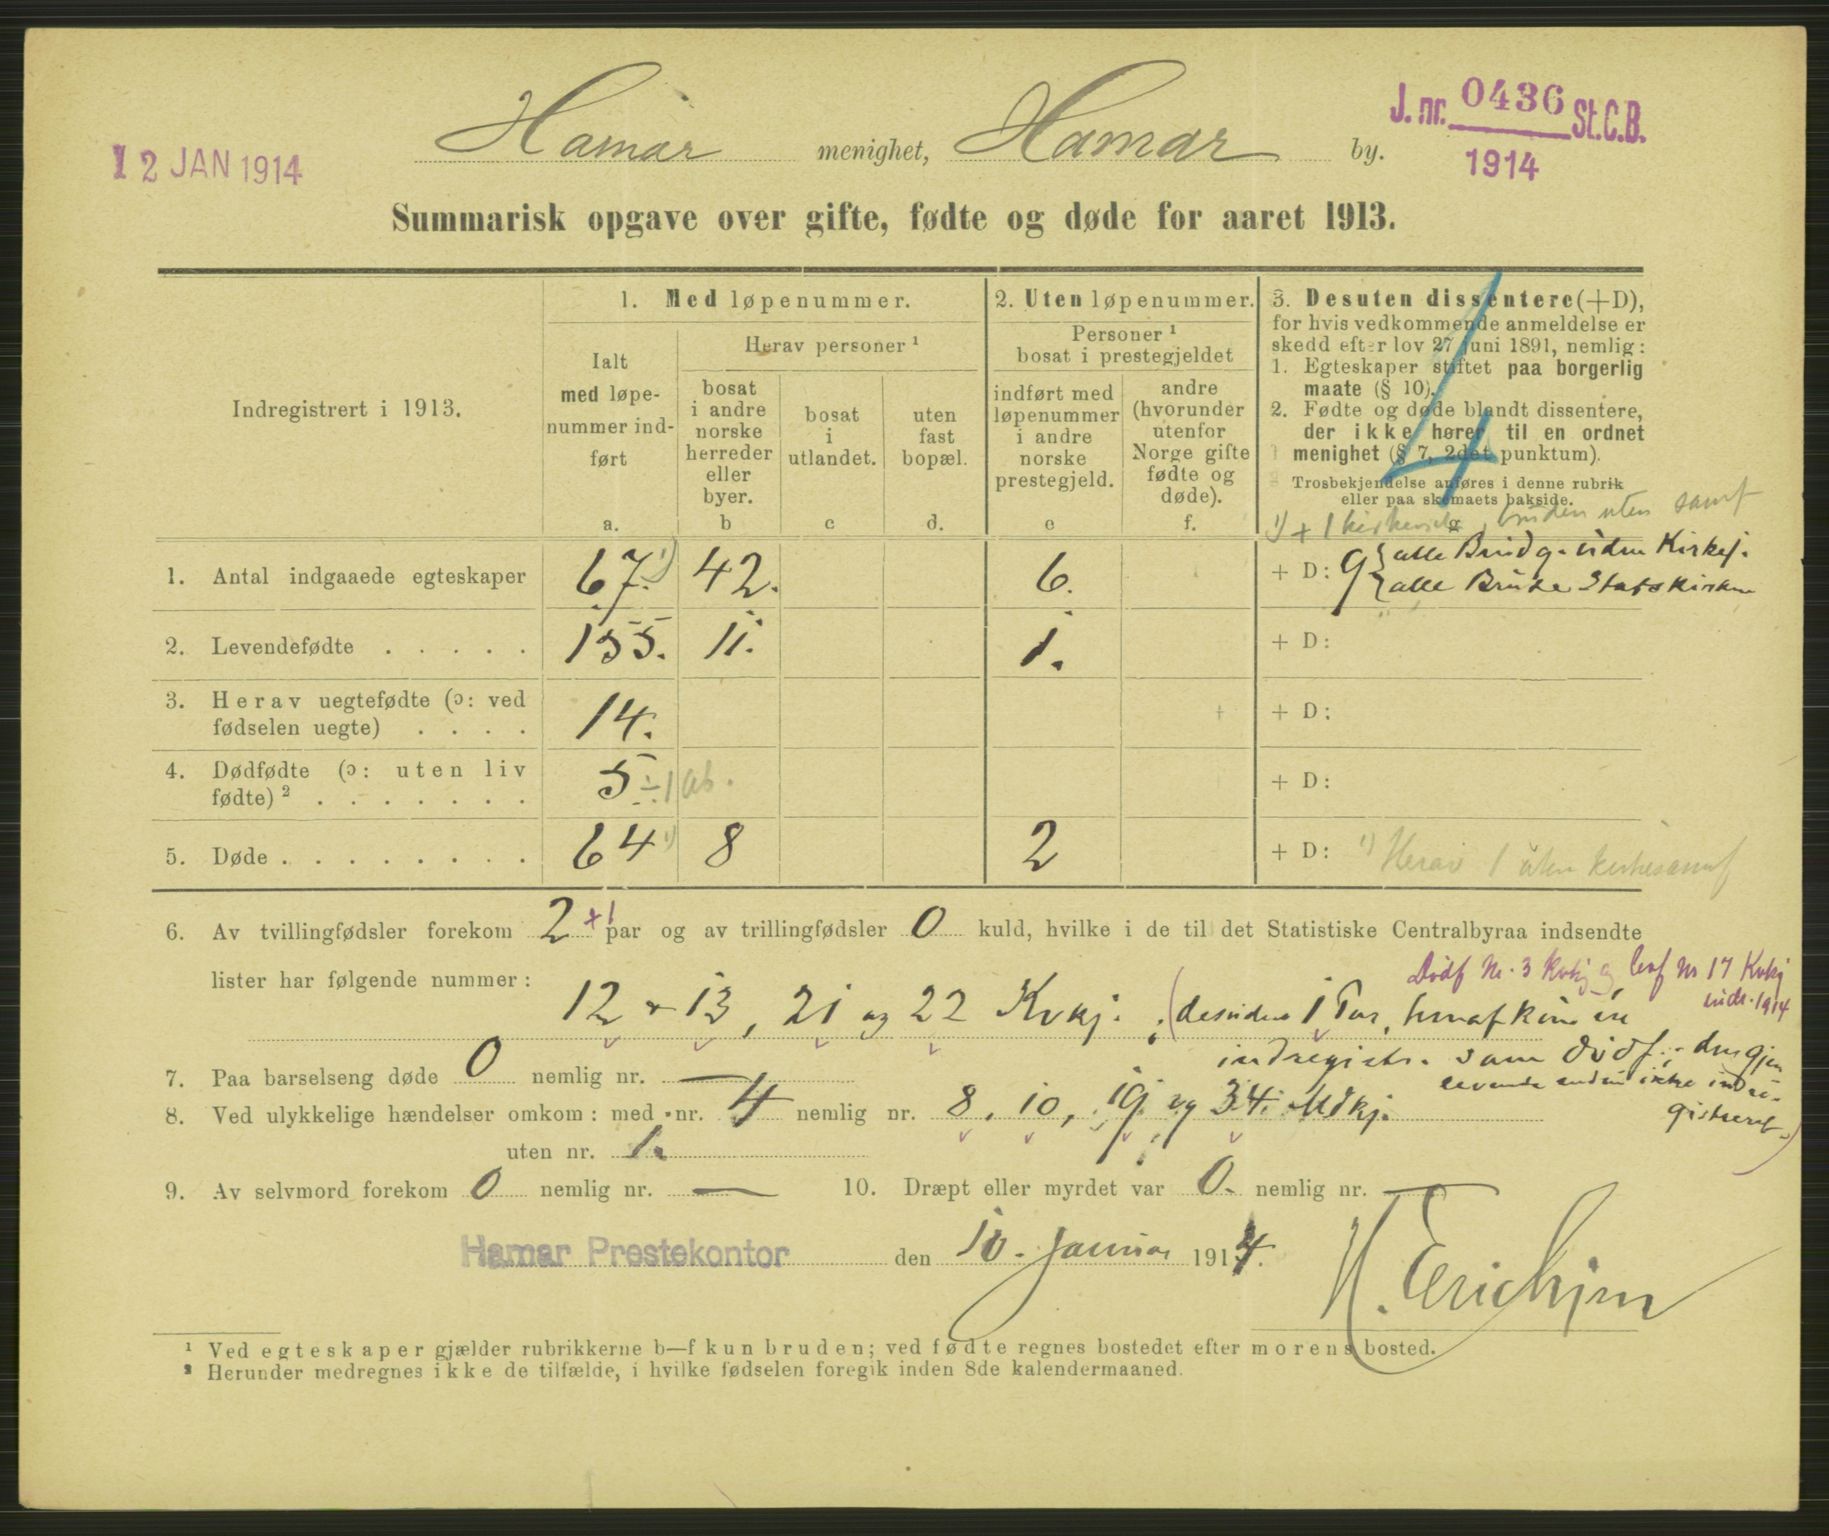 Hamar menighet, Hamar by.
J. nr. 0436 St.C.B.
1914
12 JAN 1914
Summarisk opgave over gifte, fødte og døde for aaret 1913.
Indregistrert i 1913.
1. Med løpenummer.
Ialt
med løpe-
nummer ind-
ført
a.
Herav personer ¹
bosat
i andre
norske
herreder
eller
byer.
b
bosat
i
utlandet.
c
uten
fast
bopæl.
d.
2. Uten løpenummer.
Personer ¹
bosat i prestegjeldet
indført med
løpenummer
i andre
norske
prestegjeld.
e
andre
(hvorunder
utenfor
Norge gifte
fødte og
døde).
f.
3. Desuten dissentere (+D),
for hvis vedkommende anmeldelse er
skedd efter lov 27 juni 1891, nemlig:
1. Egteskaper stiftet paa borgerlig
maate (§ 10).
2. Fødte og døde blandt dissentere,
der ikke hører til en ordnet
menighet (§ 7, 2det punktum).
Trosbekjendelse anføres i denne rubrik
eller paa skemaets bakside.
g
4
¹) + 1 bruden uten samf
1. Antal indgaaede egteskaper 67.¹) 42. 6. + D: 9 { alle Brudg. uden Kirkej.
{ alle Brude Statskirken
2. Levendefødte . . . . . 155. 11. 1. + D:
3. Herav uegtefødte (ɔ: ved
fødselen uegte) . . . . 14. + D:
4. Dødfødte (ɔ: uten liv
fødte) ² . . . . . . . 5 ÷ 1 ab. + D:
5. Døde . . . . . . . . 64 ¹) 8 2 + D: ¹) Herav 1 uten kirkesamf
6. Av tvillingfødsler forekom 2 +1 par og av trillingfødsler 0 kuld, hvilke i de til det Statistiske Centralbyraa indsendte
lister har følgende nummer:
Dødf Nr. 3 Kvkj og levf Nr 17 Kvkj
indr. 1914
12 + 13, 21 og 22 Kvkj. (desuden 1 Par, hvoraf kun en
indregistr. som dødf. - den gjen
levende endnu ikke indre-
gistreret.)
7. Paa barselseng døde 0 nemlig nr. —
8. Ved ulykkelige hændelser omkom: med nr. 4 nemlig nr. 8, 10, 19 og 34. Mdkj.
uten nr. 1.
9. Av selvmord forekom 0 nemlig nr. — 10. Dræpt eller myrdet var 0. nemlig nr. —
Hamar Prestekontor den 10. Januar 1914.
¹ Ved egteskaper gjælder rubrikkerne b—f kun bruden; ved fødte regnes bostedet efter morens bosted.
² Herunder medregnes ikke de tilfælde, i hvilke fødselen foregik inden 8de kalendermaaned.